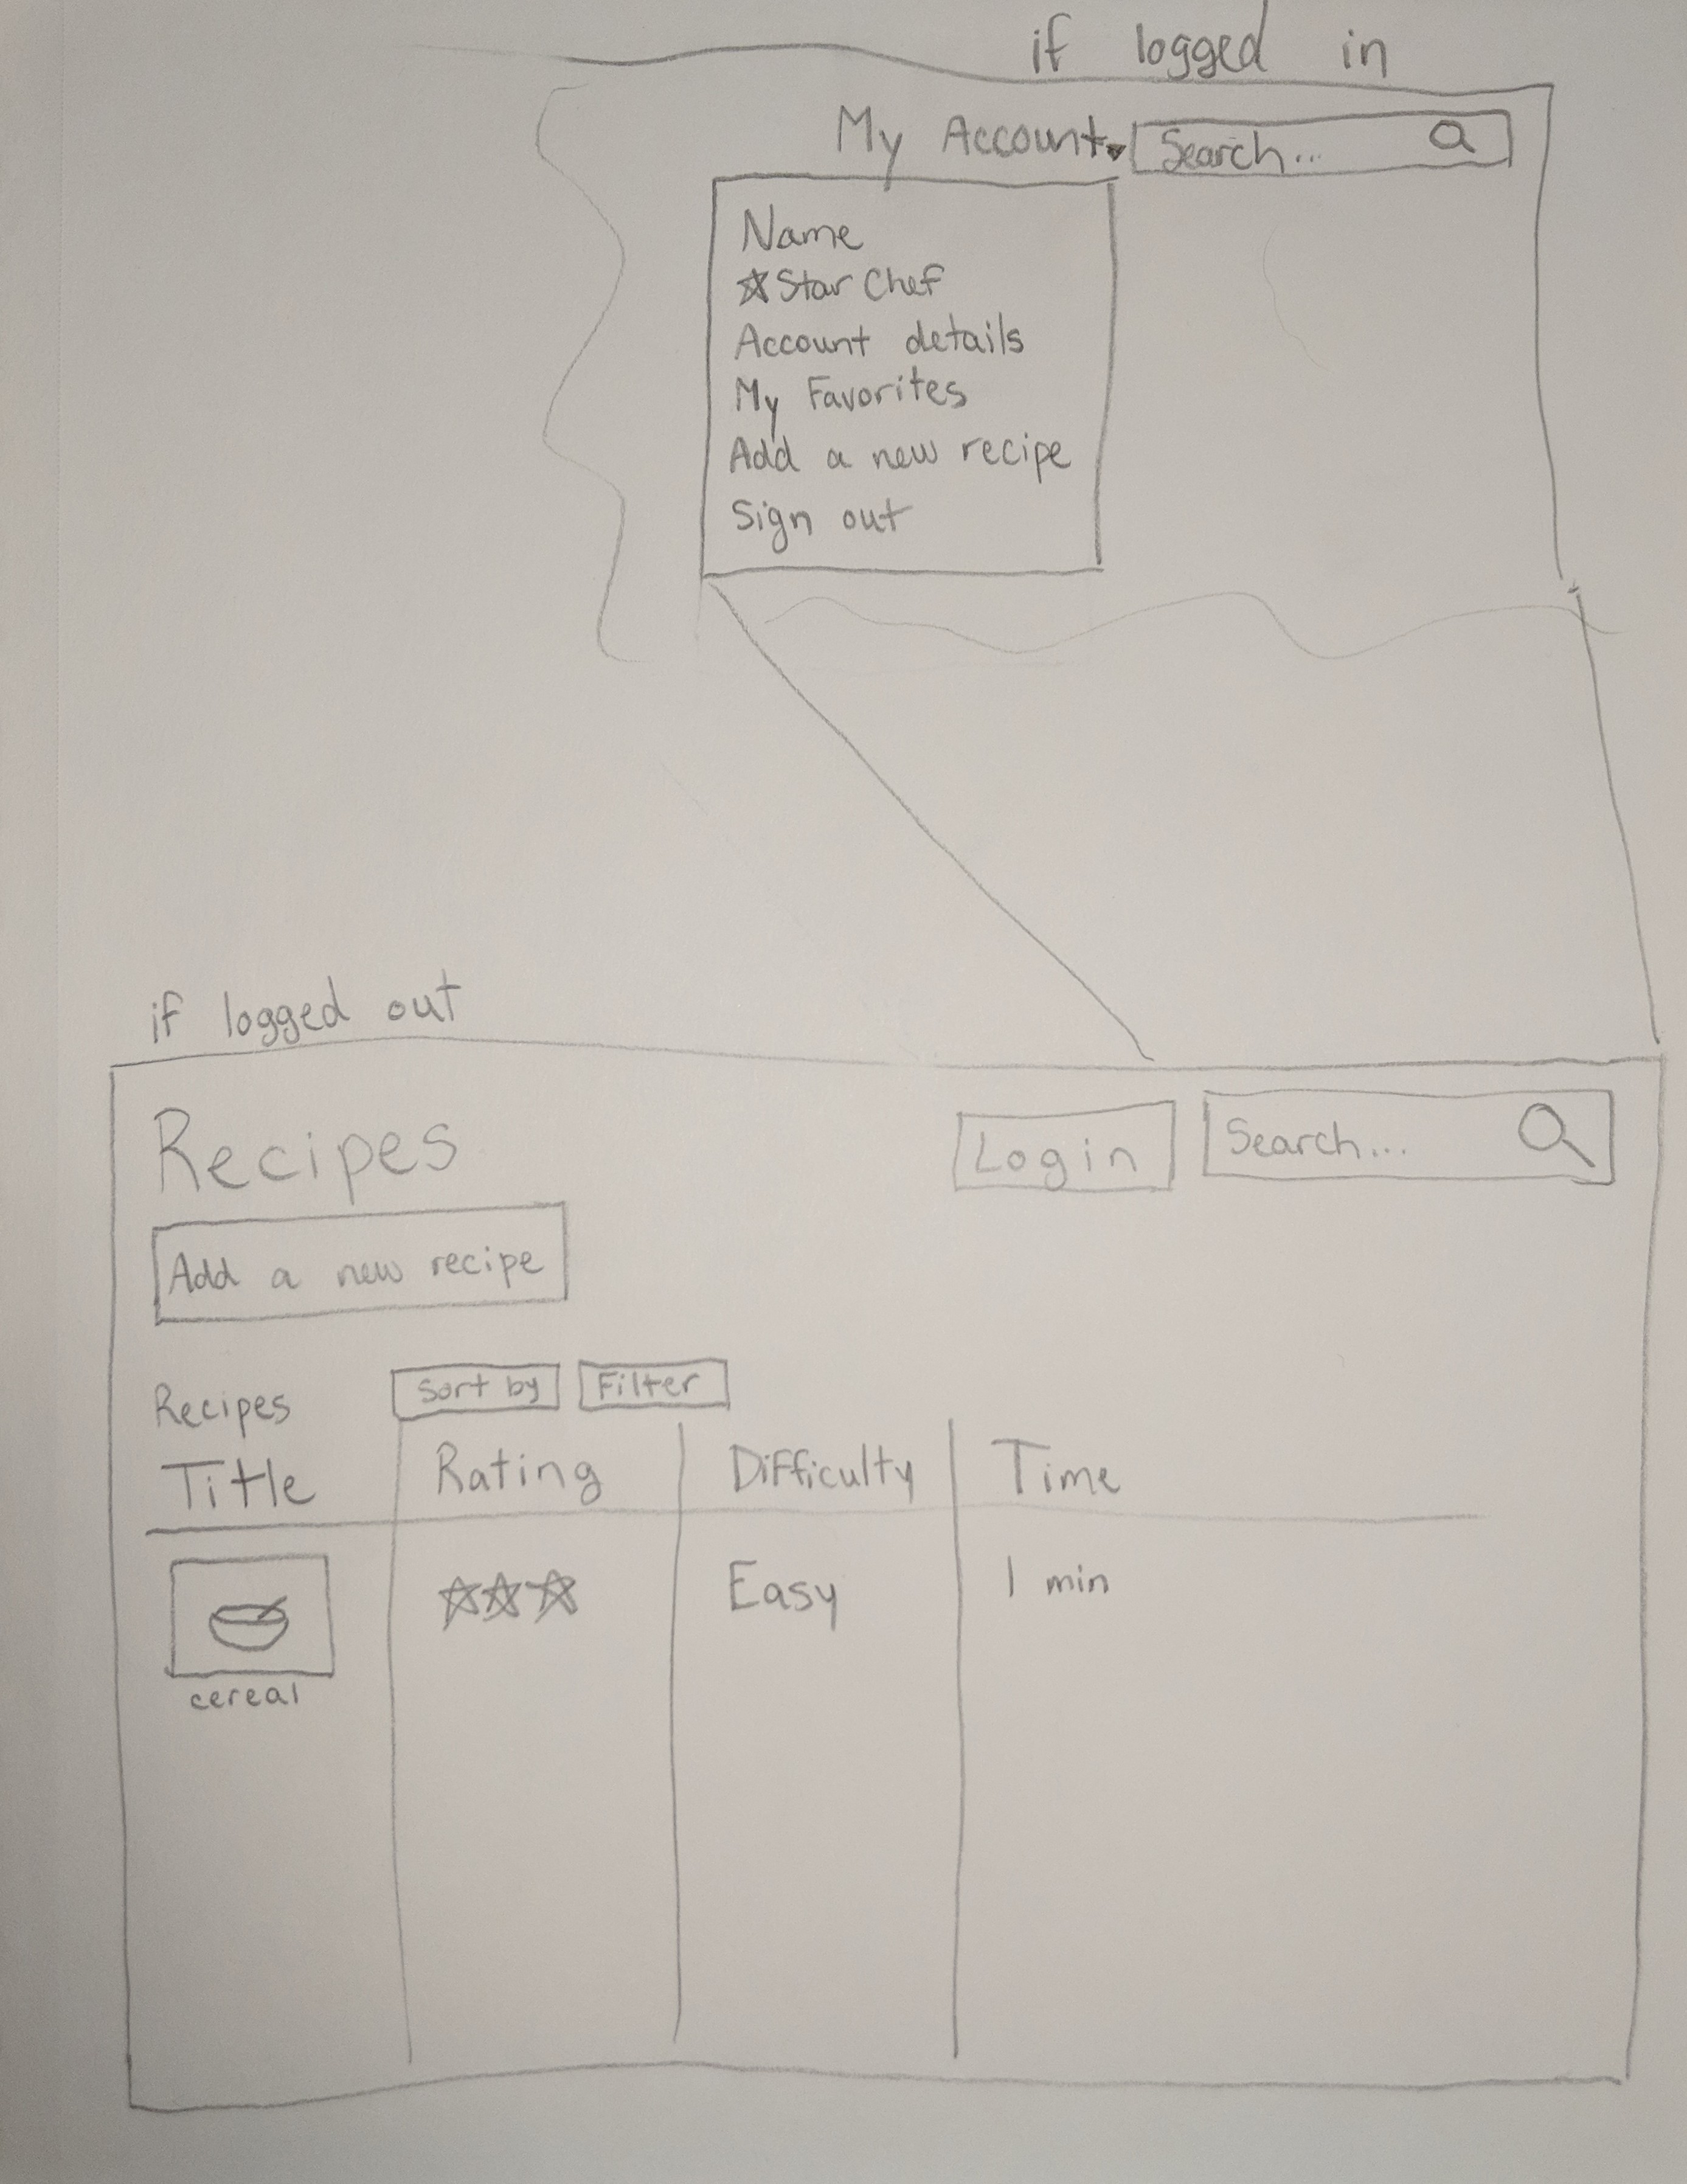 if logged in
My Account Search...
Name
Star Chef
Account details
My Favorites
Add a new recipe
Sign out
if logged out
Recipes Login Search...
Add a new recipe
Recipes Sort by Filter
Title Rating Difficulty Time
Easy 1 min
cereal